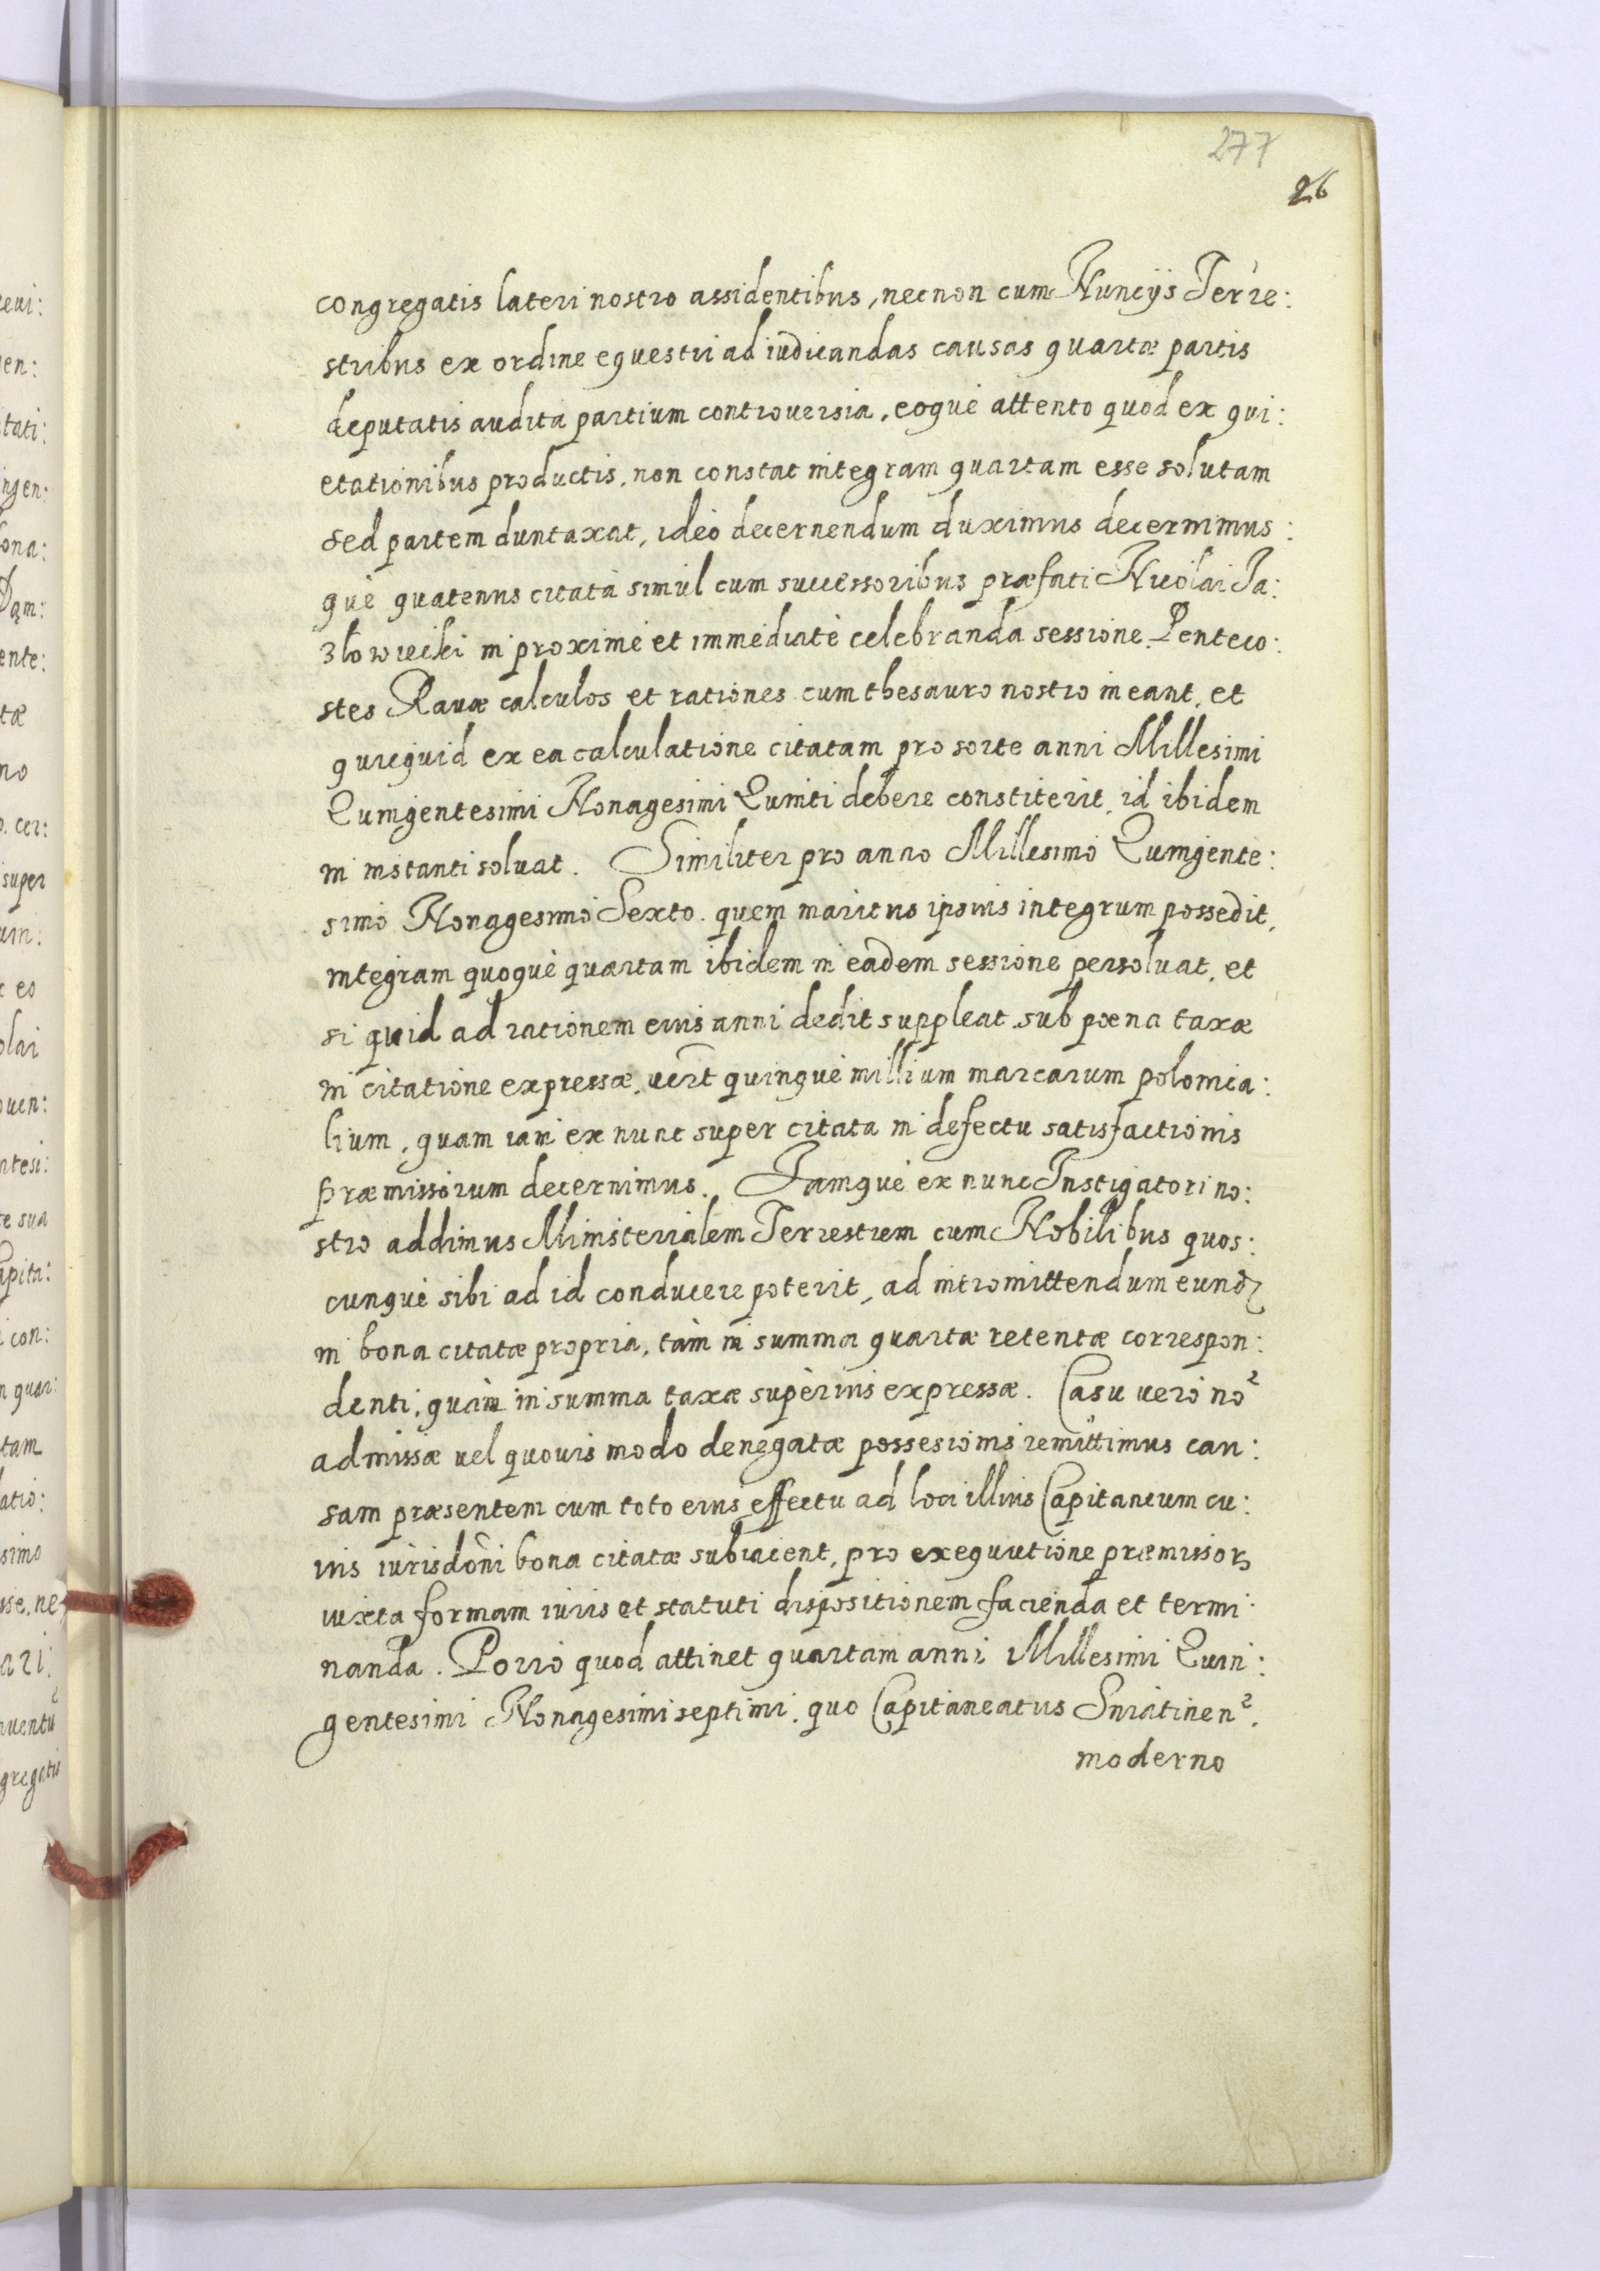 277
26
congregatis lateri nostro assidentibus, necnon cum Nuncijs Terre:
stribus ex ordine equestri ad iudicandas causas quartæ partis
deputatis audita partium controuersia, eoquè attento quod ex qui:
etationibus productis, non constat integram quartam esse solutam
sed partem duntaxat, ideò decernendum duximus decernimus:
què quatenus citata simul cum successoribus præfati Nicolai Ja:
złowiecki in proximè et immediatè celebranda sessione Penteco:
stes Rauæ calculos et rationes cum thesauro nostro ineant, et
quicquid ex ea calculatione citatam pro sorte anni Millesimi
Quingentesimi Nonagesimi Quinti debere constiterit, id ibidem
in instanti soluat. Similiter pro anno Millesimo Quingente:
simo Nonagesimo Sexto. quem maritus ipsius integrum possedit,
integram quoquè quartam ibidem in eadem sessione persoluat, et
si quid ad rationem eius anni dedit suppleat sub pœna taxæ
in citatione expressæ, vert quinquè millium marcarum polonica:
lium, quam iam ex nunc super citata in defectu satisfactionis
præmissorum decernimus. Jamquè ex nunc Instigatori no:
stro addimus Ministerialem Terrestrem cum Nobilibus quos:
cunquè sibi ad id conducere poterit, ad intromittendum eund
in bona citatæ propria, tàm in summa quartæ retentæ correspon:
denti, quàm in summa taxæ supèrius expressæ. Casu verò no
admissæ vel quouis modo denegatæ possesionis remittimus cau:
sam præsentem cum toto eius effectu ad loci illius Capitaneum cu:
ius iurisdoni bona citatæ subiacent, pro exequutione præmissor
iuxta formam iuris et statuti dispositionem facienda et termi:
nanda. Porrò quod attinet quartam anni Millesimi Quin:
gentesimi Nonagesimi septimi, quo Capitaneatus Sniatinen.
moderno